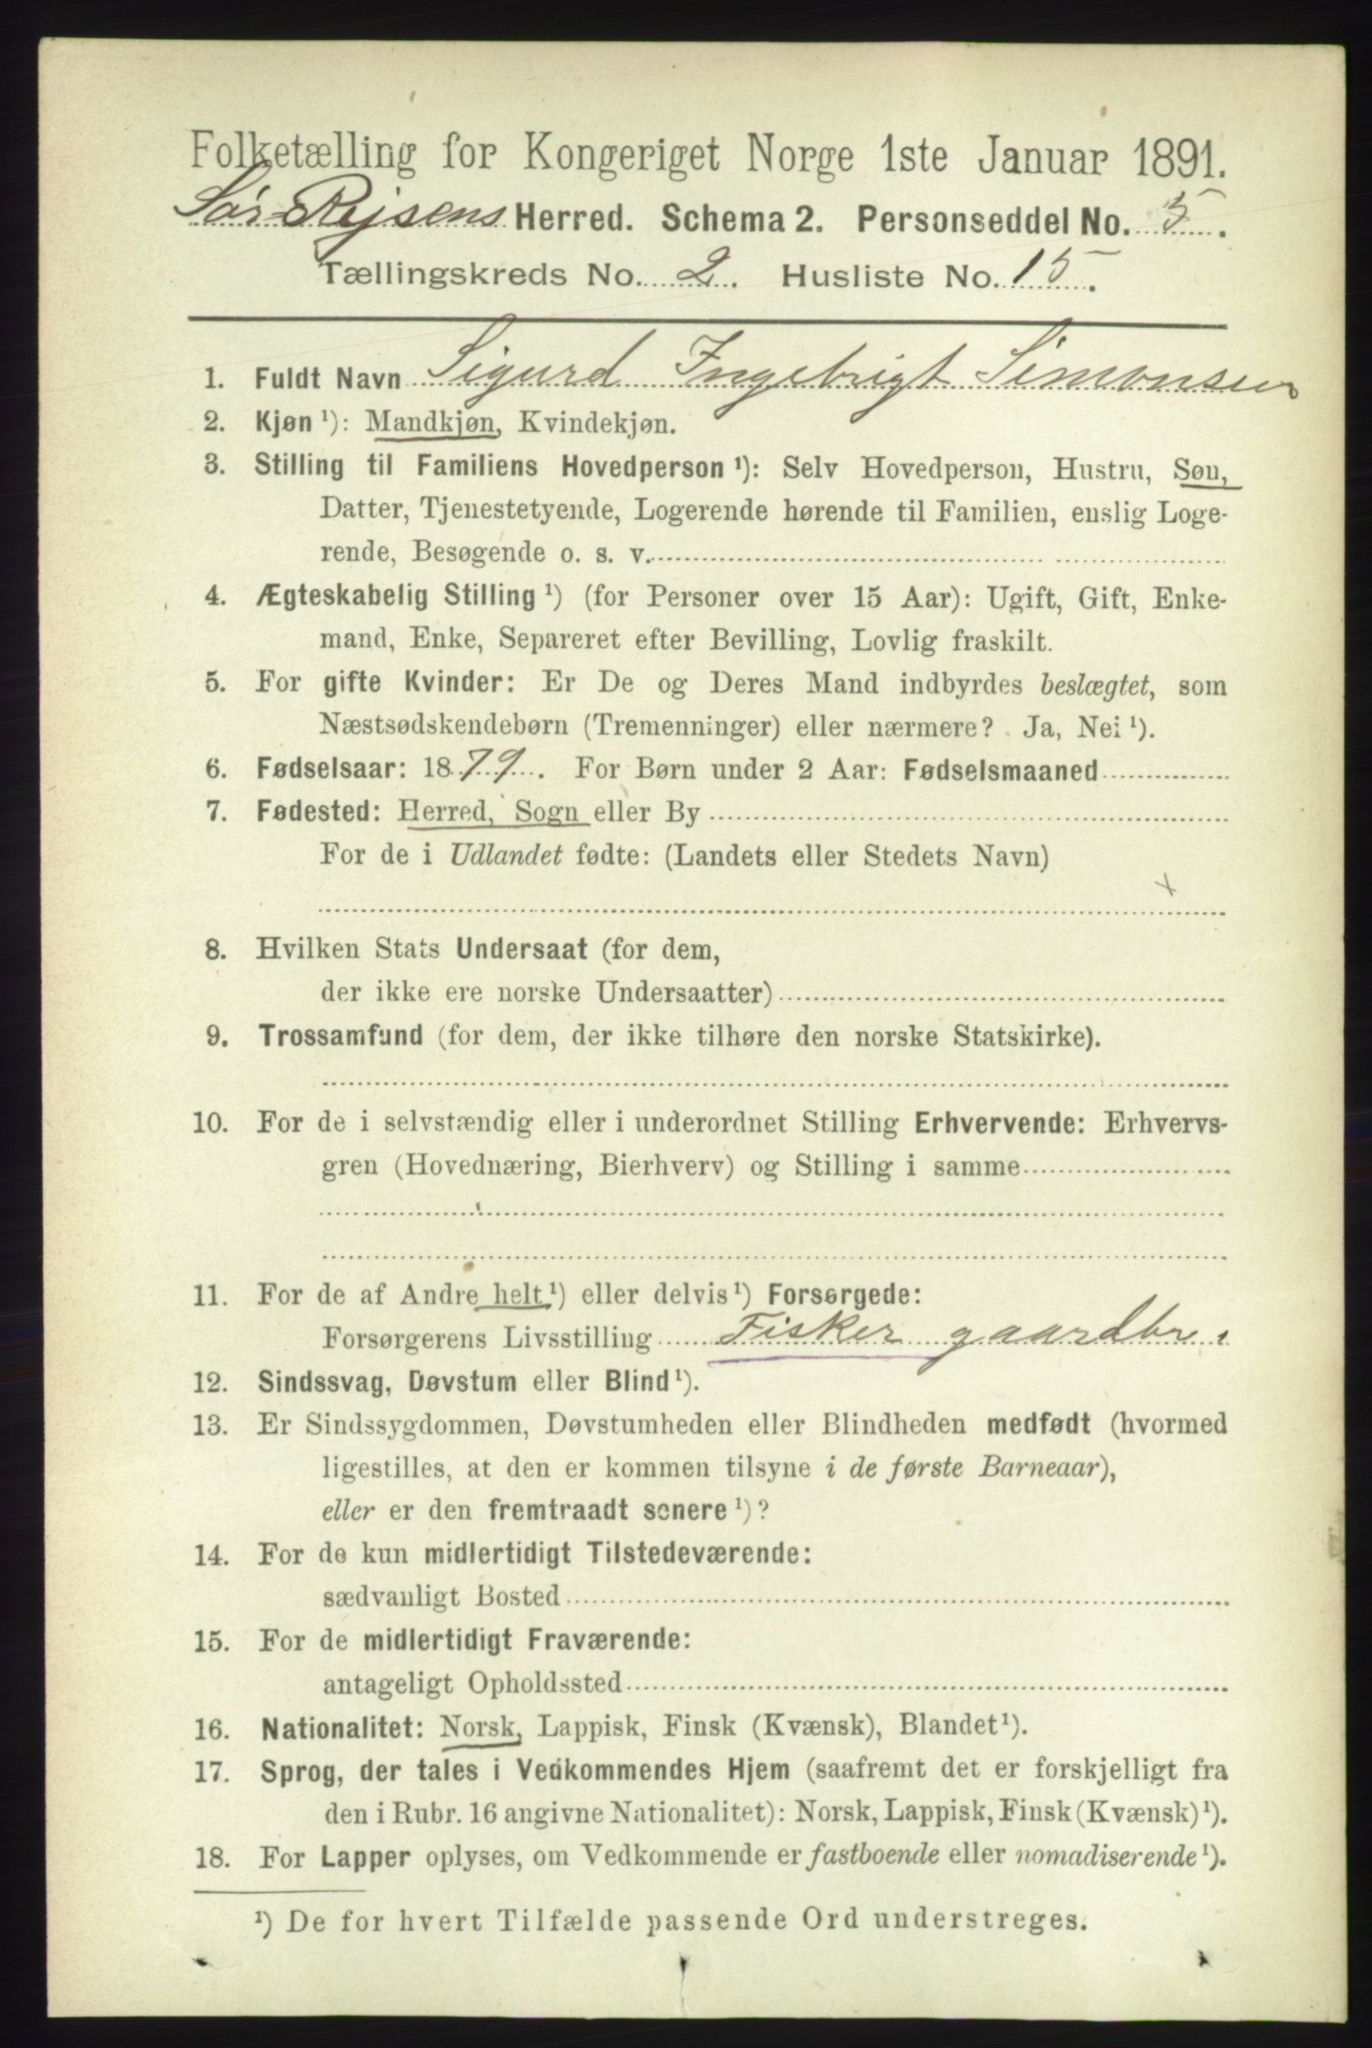 Folketælling for Kongeriget Norge 1ste Januar 1891.
Sør-Rejsens Herred. Schema 2. Personseddel No. 5.
Tællingskreds No. 2. Husliste No. 15.
1. Fuldt Navn Sigurd Ingebrigt Simonsen
2. Kjøn ¹): Mandkjøn, Kvindekjøn.
3. Stilling til Familiens Hovedperson ¹): Selv Hovedperson, Hustru, Søn,
Datter, Tjenestetyende, Logerende hørende til Familien, enslig Loge-
rende, Besøgende o. s. v.
4. Ægteskabelig Stilling ¹) (for Personer over 15 Aar): Ugift, Gift, Enke-
mand, Enke, Separeret efter Bevilling, Lovlig fraskilt.
5. For gifte Kvinder: Er De og Deres Mand indbyrdes beslægtet, som
Næstsødskendebørn (Tremenninger) eller nærmere? Ja, Nei ¹).
6. Fødselsaar: 1879. For Børn under 2 Aar: Fødselsmaaned
7. Fødested: Herred, Sogn eller By
For de i Udlandet fødte: (Landets eller Stedets Navn)
x
8. Hvilken Stats Undersaat (for dem,
der ikke ere norske Undersaatter)
9. Trossamfund (for dem, der ikke tilhøre den norske Statskirke).
10. For de i selvstændig eller i underordnet Stilling Erhvervende: Erhvervs-
gren (Hovednæring, Bierhverv) og Stilling i samme
11. For de af Andre helt ¹) eller delvis ¹) Forsørgede:
Forsørgerens Livsstilling Fisker gaardbr.
12. Sindssvag, Døvstum eller Blind ¹).
13. Er Sindssygdommen, Døvstumheden eller Blindheden medfødt (hvormed
ligestilles, at den er kommen tilsyne i de første Barneaar),
eller er den fremtraadt senere ¹)?
14. For de kun midlertidigt Tilstedeværende:
sædvanligt Bosted
15. For de midlertidigt Fraværende:
antageligt Opholdssted
16. Nationalitet: Norsk, Lappisk, Finsk (Kvænsk), Blandet ¹).
17. Sprog, der tales i Vedkommendes Hjem (saafremt det er forskjelligt fra
den i Rubr. 16 angivne Nationalitet): Norsk, Lappisk, Finsk (Kvænsk) ¹).
18. For Lapper oplyses, om Vedkommende er fastboende eller nomadiserende ¹).
¹) De for hvert Tilfælde passende Ord understreges.